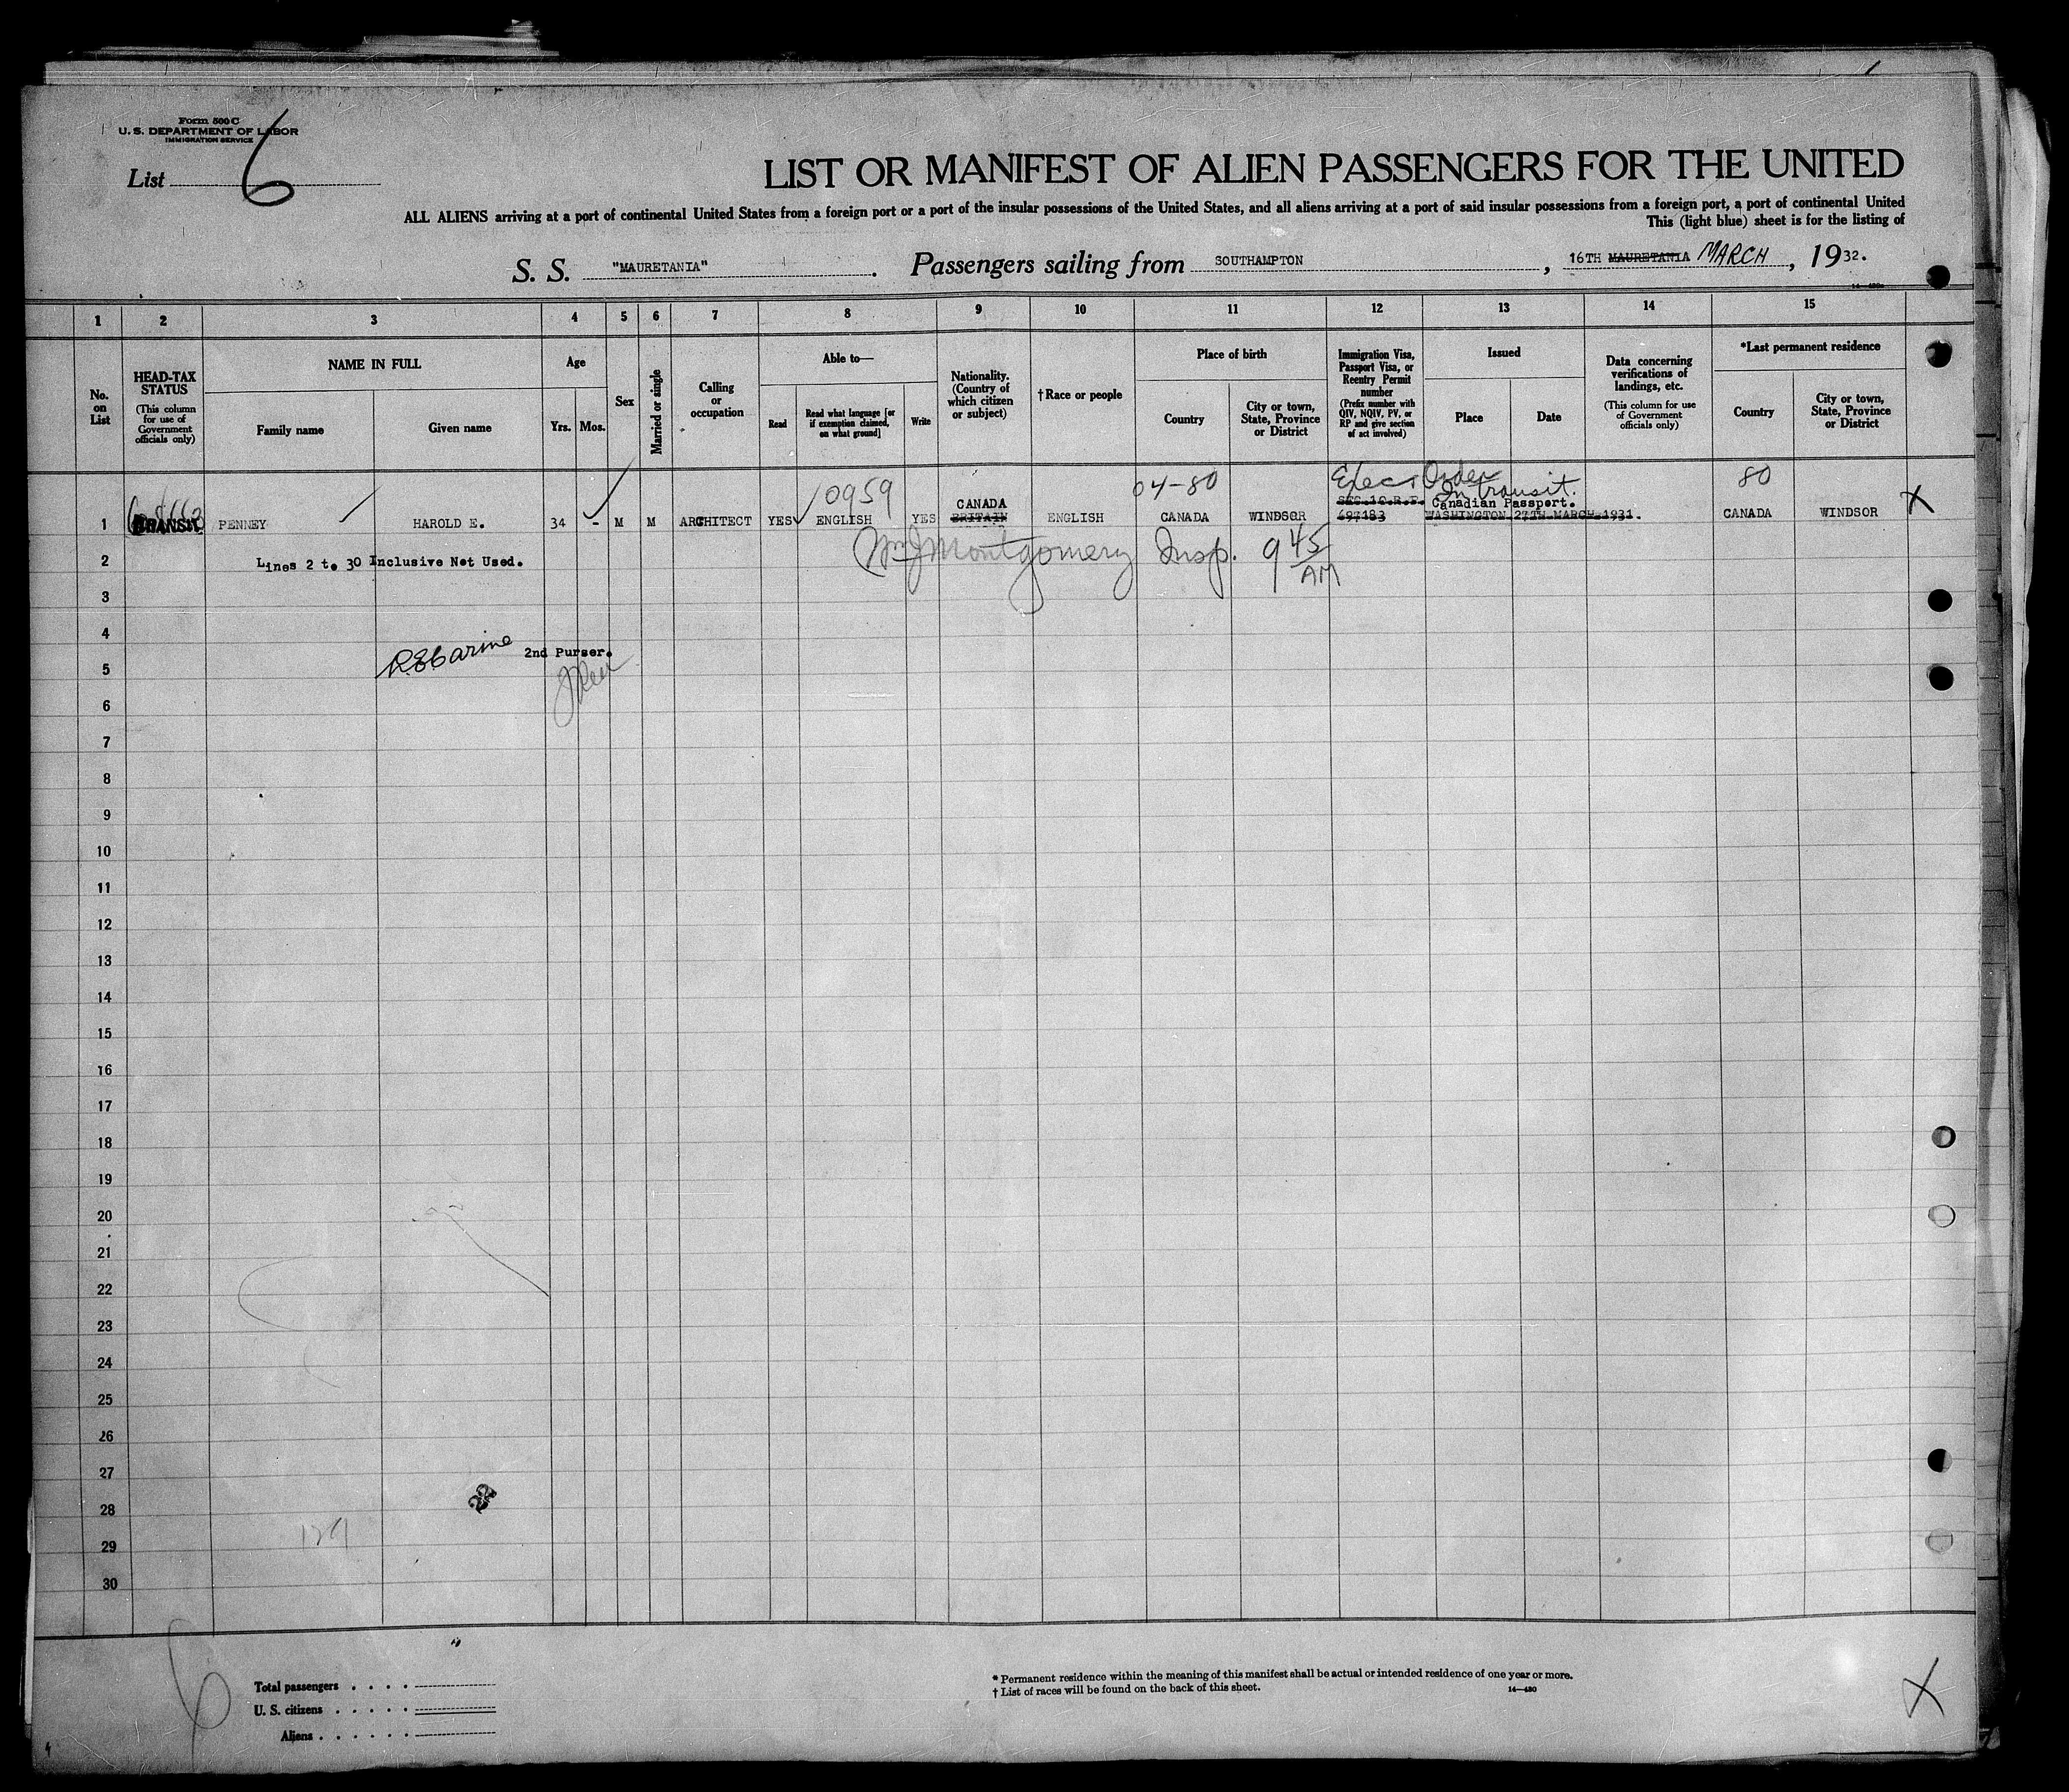 Form 500 C
U. S. DEPARTMENT OF LABOR
IMMIGRATION SERVICE
List 6
LIST OR MANIFEST OF ALIEN PASSENGERS FOR THE UNITED
ALL ALIENS arriving at a port of continental United States from a foreign port or a port of the insular possessions of the United States, and all aliens arriving at a port of said insular possessions from a foreign port, a port of continental United
This (light blue) sheet is for the listing of
S. S. "MAURETANIA". Passengers sailing from SOUTHAMPTON, 16TH MAURETANIA MARCH, 1932.
14—480
1 2 3 4 5 6 7 8 9 10 11 12 13 14 15
No. on List
HEAD-TAX STATUS (This column for use of Government officials only)
NAME IN FULL
Family name
Given name
Age
Yrs. Mos.
Sex
Married or single
Calling or occupation
Able to—
Read
Read what language [or if exemption claimed, on what ground]
Write
Nationality. (Country of which citizen or subject)
†Race or people
Place of birth
Country
City or town, State, Province or District
Immigration Visa, Passport Visa, or Reentry Permit number (Prefix number with QIV, NQIV, PV, or RP and give section of act involved)
Issued
Place
Date
Data concerning verifications of landings, etc. (This column for use of Government officials only)
*Last permanent residence
Country
City or town, State, Province or District
0959 04-80 Exec. Order 80
In transit.
CANADA Canadian Passport. X
1 TRANSIT PENNEY HAROLD E. 34 - M M ARCHITECT YES ENGLISH YES BRITAIN ENGLISH CANADA WINDSOR 697183 WASHINGTON 27TH MARCH 1931. CANADA WINDSOR
2 Lines 2 to 30 Inclusive Not Used. Wm J Montgomery Insp. 9 45 AM
3
4
2nd Purser.
5
6
7
8
9
10
11
12
13
14
15
16
17
18
19
20
21
22
23
24
25
26
27
28
22
29
30
6
Total passengers . . . .
U. S. citizens . . . . .
Aliens . . . . . .
* Permanent residence within the meaning of this manifest shall be actual or intended residence of one year or more.
† List of races will be found on the back of this sheet.
14—480
X